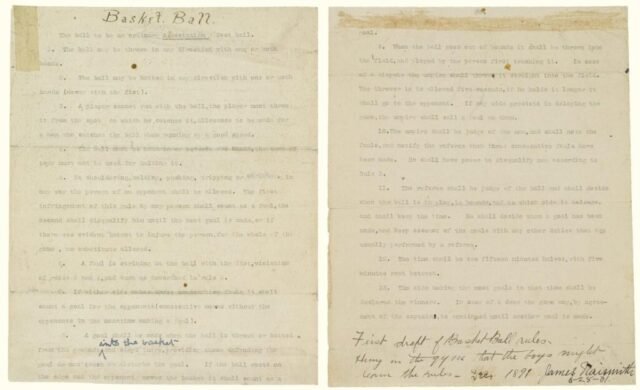 Basket Ball.
The ball to be an ordinary Association foot ball.
1. The ball may be thrown in any direction with one or both
hands.
2. The ball may be batted in any direction with one or both
hands (never with the fist).
3. A player cannot run with the ball, the player must throw
it from the spot on which he catches it, allowance to be made for
a man who catches the ball when running at a good speed.
4. The ball must be held in or between the hands, the arms or
body must not be used for holding it.
5. No shouldering, holding, pushing, tripping or striking, in
any way the person of an opponent shall be allowed. The first
infringement of this rule by any person shall count as a foul, the
second shall disqualify him until the next goal is made, or if
there was evident intent to injure the person, for the whole of the
game, no substitute allowed.
6. A foul is striking at the ball with the fist, violation
of rules 3 and 4, and such as described in rule 5.
7. If either side makes three consecutive fouls it shall
count a goal for the opponents (consecutive means without the
opponents in the meantime making a foul).
into the basket
8. A goal shall be made when the ball is thrown or batted
from the grounds and stays there, providing those defending the
goal do not touch or disturb the goal. If the ball rests on
the edge and the opponent moves the basket it shall count as a
goal.
9. When the ball goes out of bounds it shall be thrown into
the field, and played by the person first touching it. In case
of a dispute the umpire shall throw it straight into the field.
The thrower in is allowed five seconds, if he holds it longer it
shall go to the opponent. If any side persists in delaying the
game, the umpire shall call a foul on them.
10. The umpire shall be judge of the men, and shall note the
fouls, and notify the referee when three consecutive fouls have
been made. He shall have power to disqualify men according to
Rule 5.
11. The referee shall be judge of the ball and shall decide
when the ball is in play, in bounds, and to which side it belongs,
and shall keep the time. He shall decide when a goal has been
made, and keep account of the goals with any other duties that are
usually performed by a referee.
12. The time shall be two fifteen minutes halves, with five
minutes rest between.
13. The side making the most goals in that time shall be
declared the winners. In case of a draw the game may, by agree-
ment of the captains, be continued until another goal is made.
First draft of Basket Ball rules.
Hung in the gym that the boys might
learn the rules - Dec. 1891 James Naismith
6-28-31.